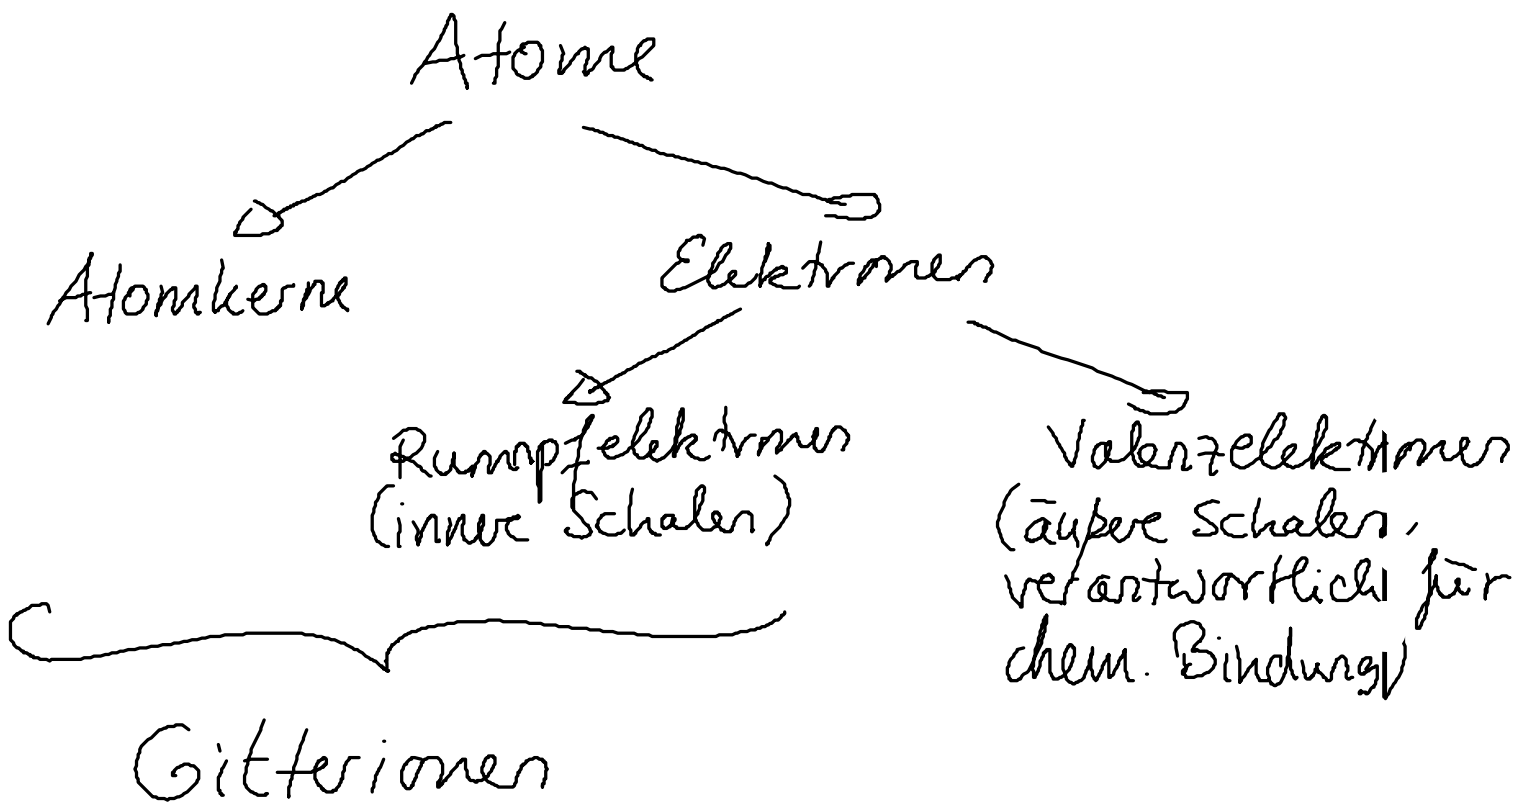 Atome
Atomkerne
Elektronen
Rumpfelektronen
(innere Schalen)
Valenzelektronen
(äußere Schalen,
verantwortlich für
chem. Bindung)
Gitterionen